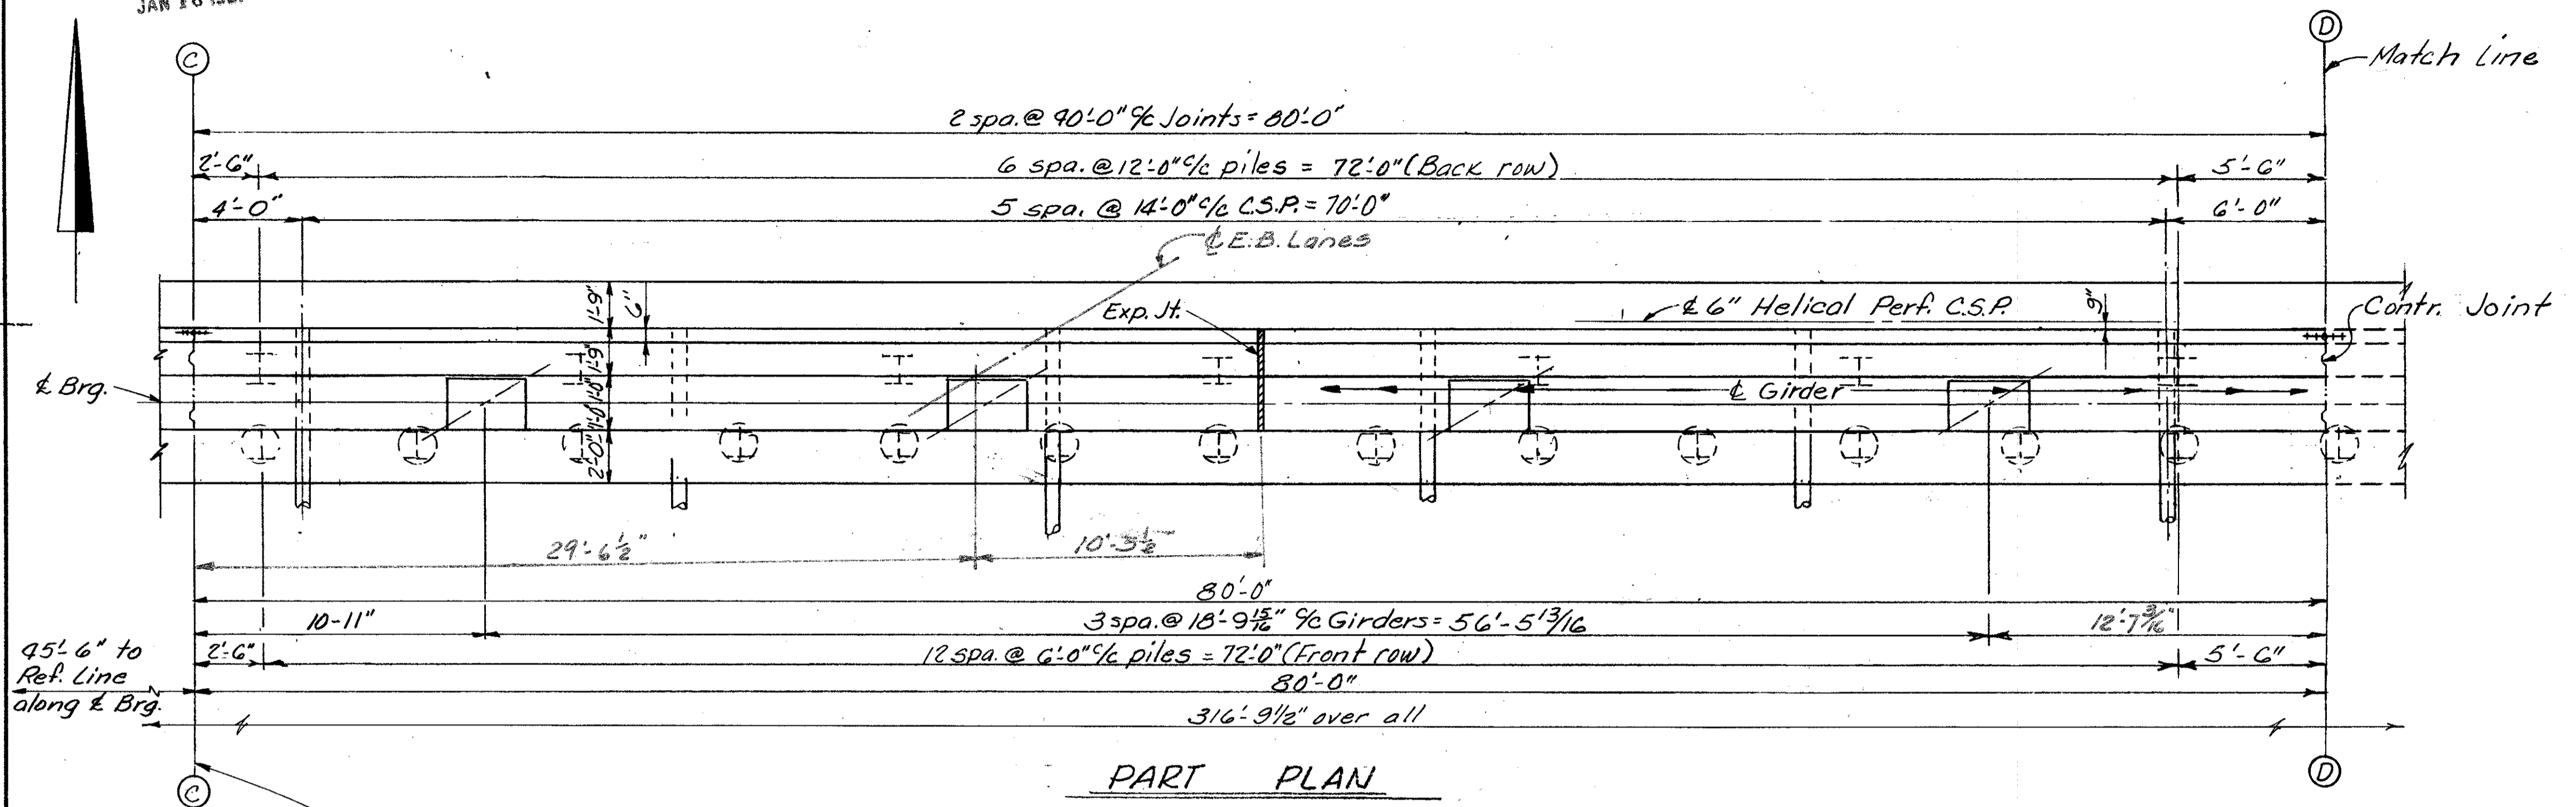 C
D
Match Line
2 spa. @ 40'-0" c/c Joints = 80'-0"
2'-6"
6 spa. @ 12'-0" c/c piles = 72'-0" (Back row)
5'-6"
4'-0"
5 spa. @ 14'-0" c/c C.S.P. = 70'-0"
6'-0"
℄ E.B. Lanes
1'-9"
6"
Exp. Jt.
℄ 6" Helical Perf. C.S.P.
9"
Contr. Joint
1'-9"
℄ Brg.
1'-0"
1'-0"
℄ Girder
2'-0"
29'-6½"
10'-5½
80'-0"
10-11"
3 spa. @ 18'-9 15/16" c/c Girders = 56'-5 13/16
12'-7 3/16"
45'-6" to
Ref. Line
along ℄ Brg.
2'-6"
12 spa. @ 6'-0" c/c piles = 72'-0" (Front row)
5'-6"
80'-0"
316'-9 1/2" over all
C
PART PLAN
D